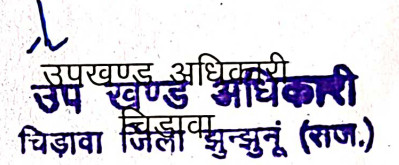 उपखण्ड अधिकारी
उप खण्ड अधिकारी
चिडावा
चिड़ावा जिला झुन्झुनूं (राज.)